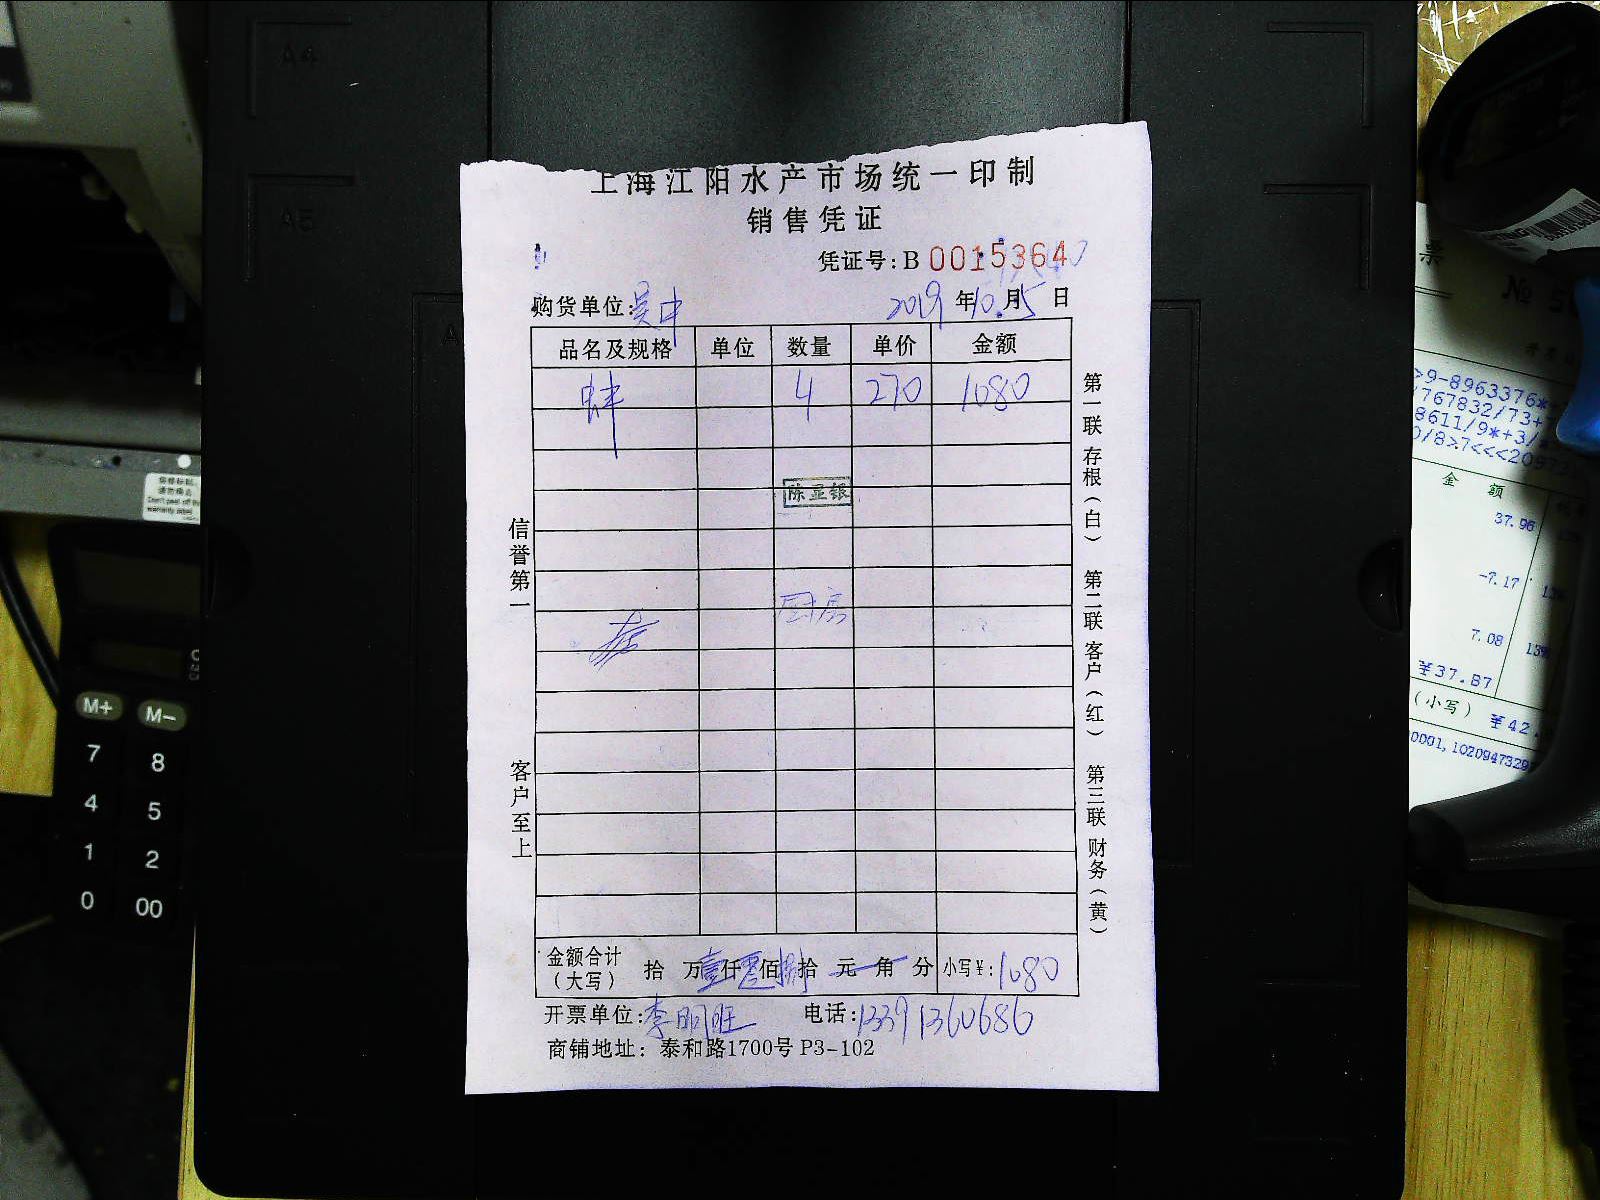 上海江阳水产市场统一印制
销售凭证
凭证号：B 00153640
购货单位：吴中 2019年10月15日
品名及规格 单位 数量 单价 金额
蚌 4 270 1080
陈显银
厨房
信誉第一
客户至上
第一联 存根（白） 第二联 客户（红） 第三联 财务（黄）
金额合计（大写） 拾 万壹仟零佰捌拾 元 角 分 小写¥：1080
开票单位：李明旺 电话：13391360686
商铺地址：泰和路1700号 P3-102
A4
A5
M+ M-
7 8
4 5
1 2
0 00
Don't peel off
warranty label
票
№
>9-8963376*
/767832/73+
8611/9*+3/
0/8>7<<<2097
金 额
37.96
-7.17
7.08
¥37.87
（小写） ¥42.
0001,1020947329